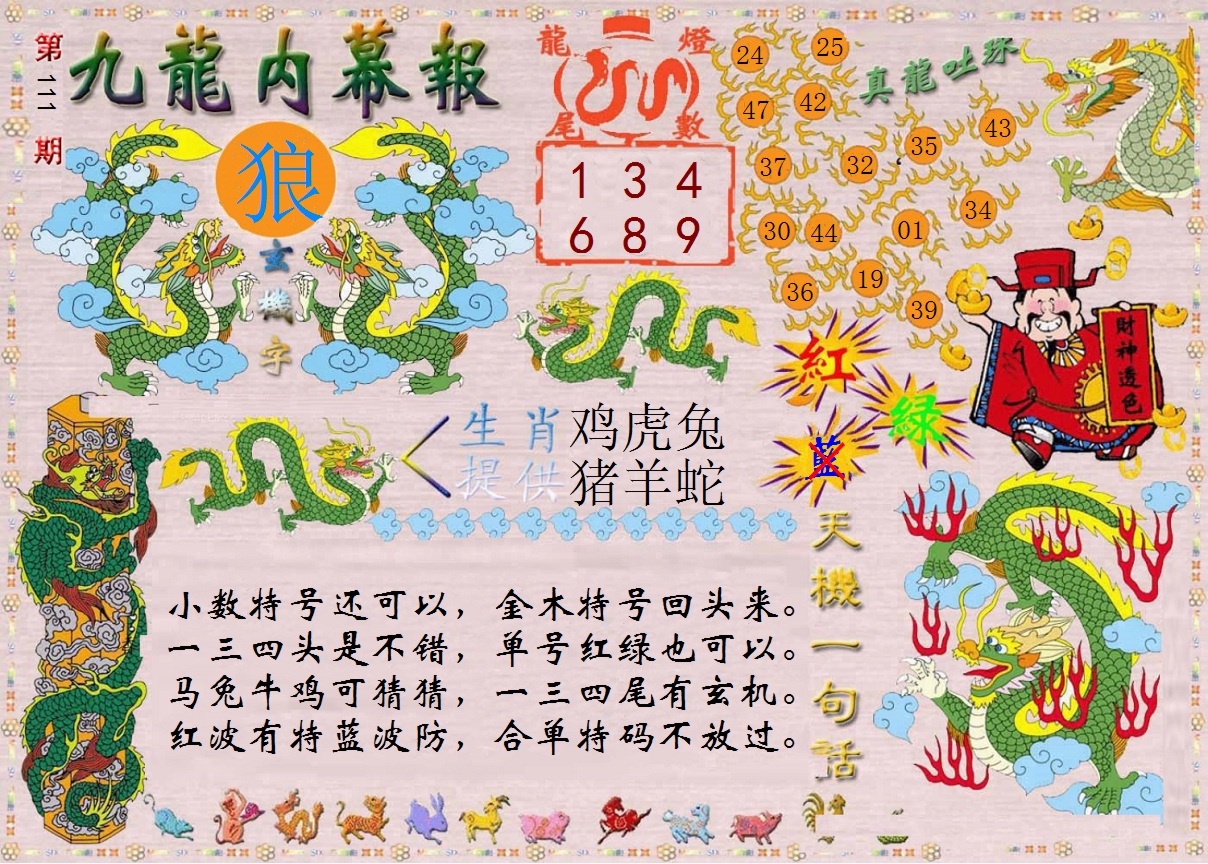 第111期
九龍内幕報
狼
玄機字
龍燈
尾數
1 3 4
6 8 9
真龍吐珠
24 25
47 42
37 32 35 43
30 44 01 34
36 19 39
財神透色
紅
绿
藍
生肖 鸡虎兔
提供 猪羊蛇
天機一句话
小数特号还可以，金木特号回头来。
一三四头是不错，单号红绿也可以。
马兔牛鸡可猜猜，一三四尾有玄机。
红波有特蓝波防，合单特码不放过。